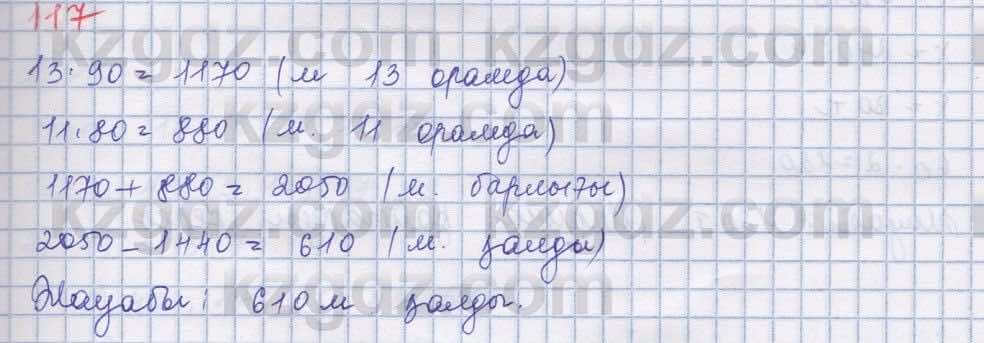 117
13·90=1170 (м 13 орамда)
11·80=880 (м. 11 орамда)
1170+880=2050 (м. барлығы)
2050-1440=610 (м. қалды)
Жауабы: 610 м қалды.
kzgdz.com kzgdz.com
kzgdz.com
kzgdz.com kzgdz.com
kzgdz.com